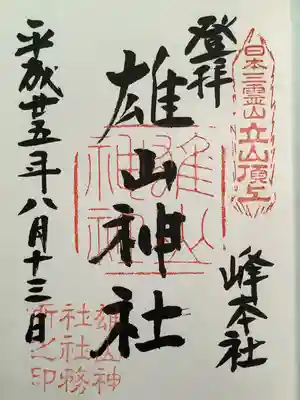 日本三霊山
立山頂上
登拝
峰本社
雄山神社
雄山
神社
平成廿五年八月十三日
雄山神
社社務
所之印